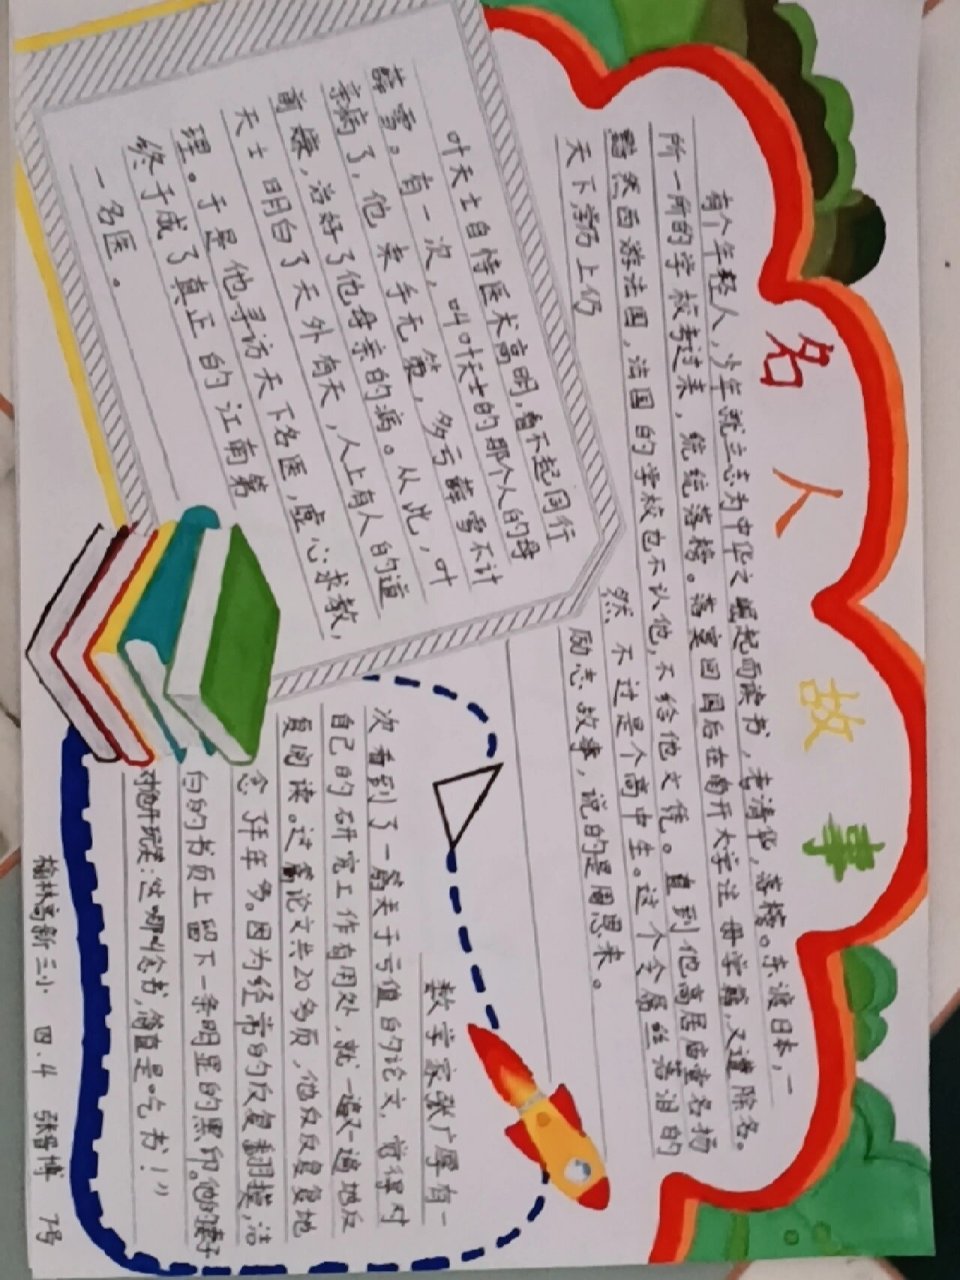 名人故事
有个年轻人，少年就立志为中华之崛起而读书，考清华，落榜。东渡日本，一
所一所的学校考过来，统统落榜。落寞回国后在南开大学注册学籍，又遭除名。
黯然西游法国，法国的学校也不认他，不给他文凭。直到他高居庙堂名扬
天下学历上仍
然不过是个高中生。这个令
落泪的
励志故事，说的是周恩来。
叶天士自恃医术高明，看不起同行
薛雪。有一次，叫叶天士的那个人的母
亲病了，他束手无策，多亏薛雪不计
前嫌，治好了他母亲的病。从此，叶
天士明白了天外有天，人上有人的道
理。于是他寻访天下名医，虚心求教，
终于成了真正的江南第
一名医。
数学家张广厚有一
次看到了一篇关于亏值的论文，觉得对
自己的研究工作有用处，就一遍又一遍地反
复阅读。这篇论文共20多页，他反反复复地
念了半年多。因为经常的反复翻摸，洁
白的书页上留下一条明显的黑印。他的妻子
对他开玩笑：这哪叫念书，简直是吃书！”
榆林高新三小 四.4 张晋博 7号